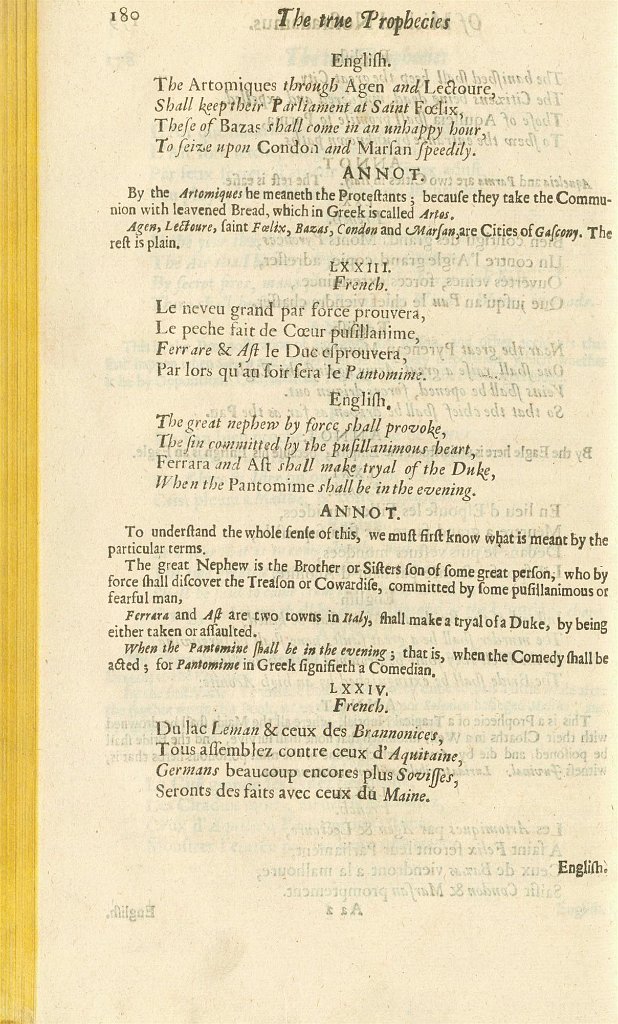 180 The true Prophecies
Engliſh.
The Artomiques through Agen and Lectoure,
Shall keep their Parliament at Saint Fœlix,
Theſe of Bazas ſhall come in an unhappy hour,
To ſeize upon Condon and Marſan ſpeedily.
ANNOT.
By the Artomiques he meaneth the Proteſtants ; becauſe they take the Commu-
nion with leavened Bread, which in Greek is called Artos.
Agen, Lectoure, ſaint Fœlix, Bazas, Condon and Marſan, are Cities of Gaſcony. The
reſt is plain.
LXXIII.
French.
Le neveu grand par force prouvera,
Le peche fait de Cœur puſillanime,
Ferrare & Aſt le Duc eſprouvera,
Par lors qu'au ſoir ſera le Pantomime.
Engliſh.
The great nephew by force ſhall provoke,
The ſin committed by the puſillanimous heart,
Ferrara and Aſt ſhall make tryal of the Duke,
When the Pantomime ſhall be in the evening.
ANNOT.
To underſtand the whole ſenſe of this, we muſt firſt know what is meant by the
particular terms.
The great Nephew is the Brother or Siſters ſon of ſome great perſon, who by
force ſhall diſcover the Treaſon or Cowardiſe, committed by ſome puſillanimous or
fearful man,
Ferrara and Aſt are two towns in Italy, ſhall make a tryal of a Duke, by being
either taken or aſſaulted.
When the Pantomine ſhall be in the evening ; that is, when the Comedy ſhall be
acted ; for Pantomime in Greek ſignifieth a Comedian.
LXXIV.
French.
Du lac Leman & ceux des Brannonices,
Tous aſſemblez contre ceux d'Aquitaine,
Germans beaucoup encores plus Soviſſes,
Seronts des faits avec ceux du Maine.
Engliſh.